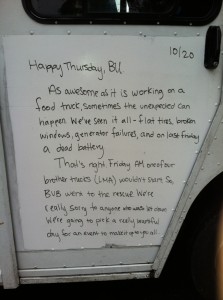 10/20
Happy Thursday, BU,
As awesome as it is working on a
food truck, sometimes the unexpected can
happen. We've seen it all - flat tires, broken
windows, generator failures, and on last Friday
a dead battery.
That's right, Friday AM one of our
brother trucks (LMA) wouldn't start. So,
BUB went to the rescue. We're
really sorry to anyone who was let down.
We're going to pick a really beautiful
day for an event to make it up to you all.